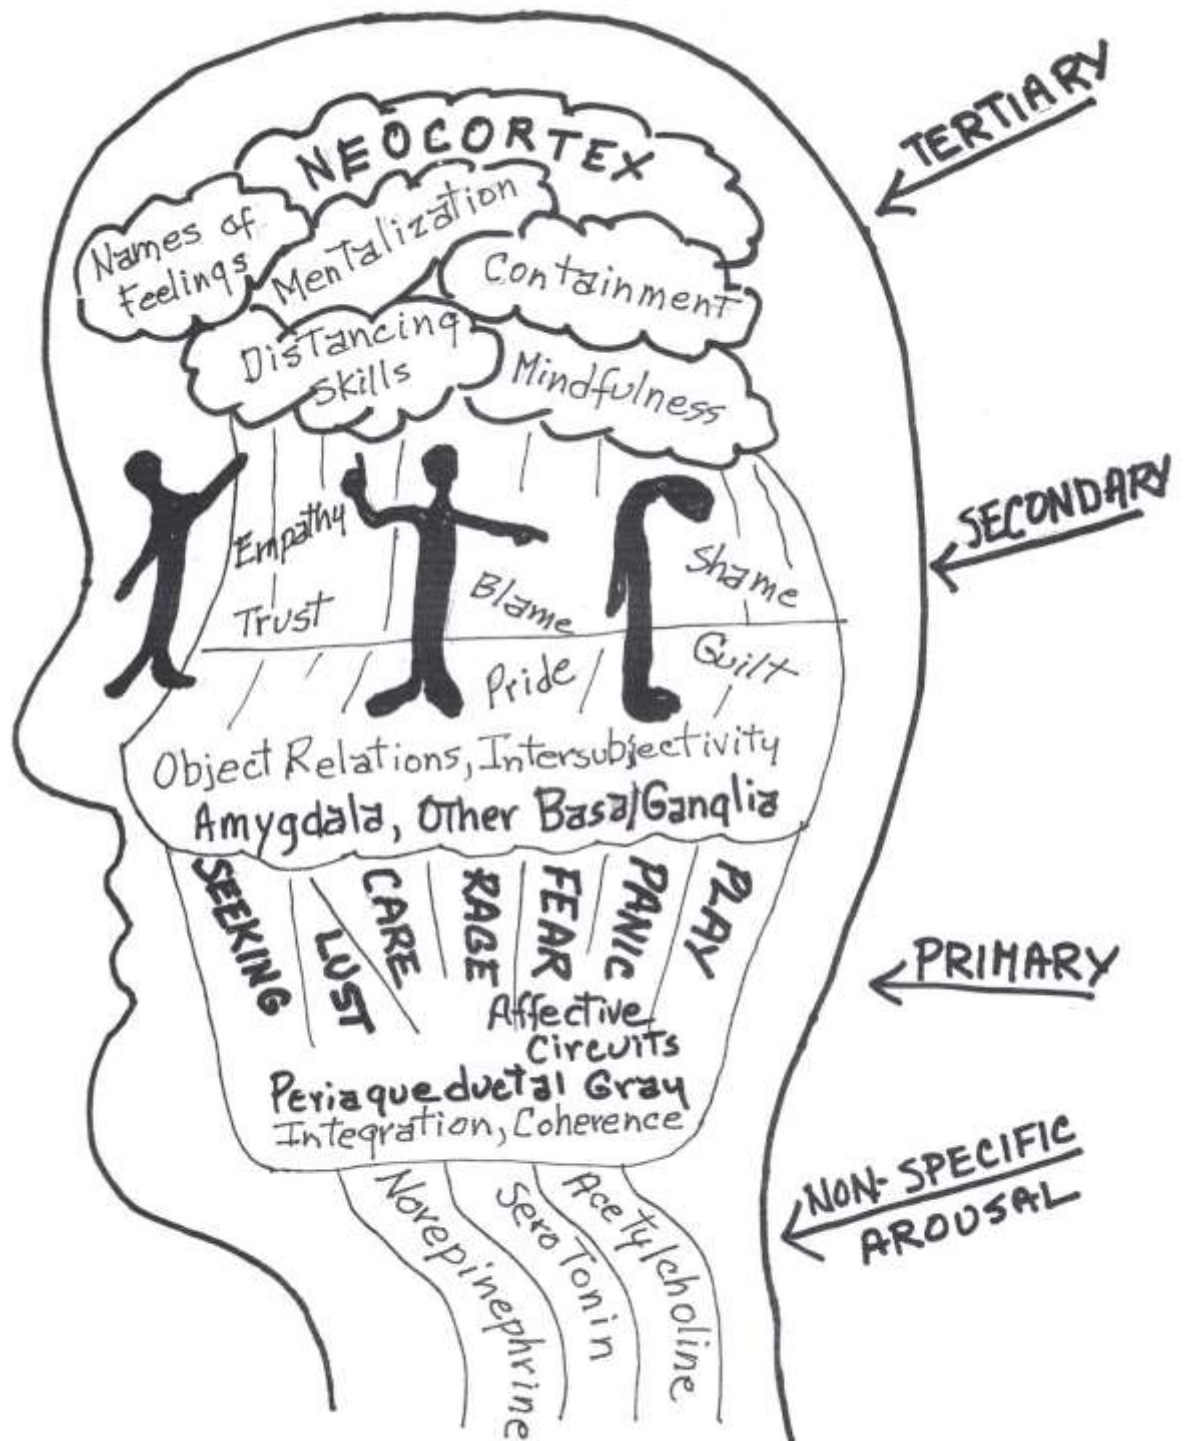 TERTIARY
NEOCORTEX
Names of
Feelings
Mentalization
Containment
Distancing
Skills
Mindfulness
SECONDARY
Empathy
Trust
Blame
Shame
Pride
Guilt
Object Relations, Intersubjectivity
Amygdala, Other Basal Ganglia
SEEKING
LUST
CARE
RAGE
FEAR
PANIC
PLAY
PRIMARY
Affective
Circuits
Periaqueductal Gray
Integration, Coherence
NON-SPECIFIC
AROUSAL
Norepinephrine
Serotonin
Acetylcholine